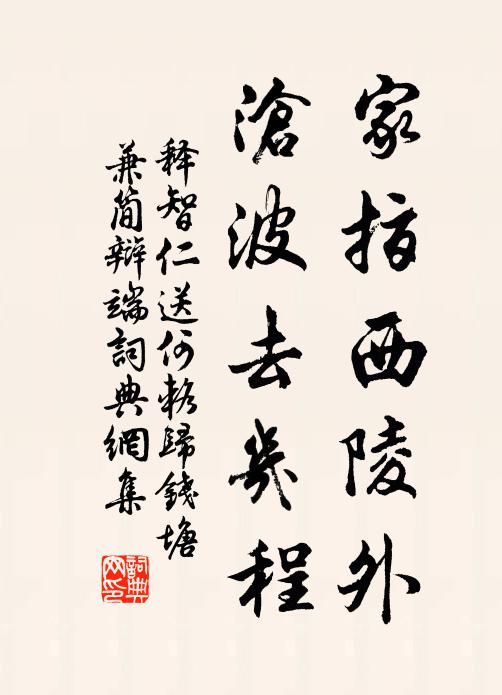 家指西陵外
滄波去幾程
释智仁送何輅歸錢塘
兼簡辯端詞典網集
詞典网印